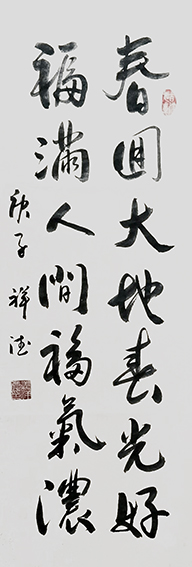 春回大地春光好
福满人间福气浓